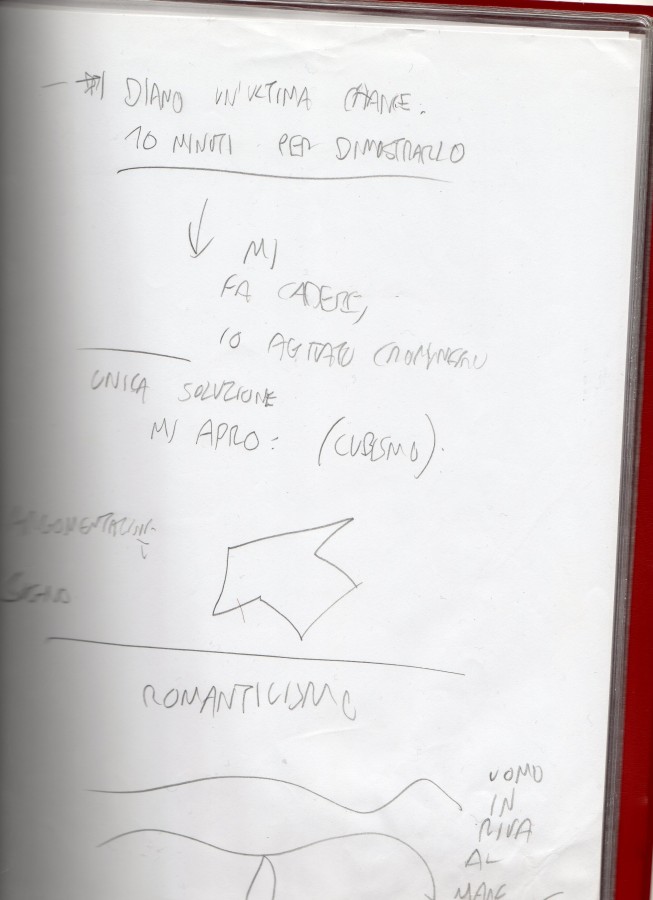 DIAMO UN'ULTIMA CHANCE.
10 MINUTI PER DIMOSTRARLO
MI
FA CADERE,
IO AGITATO
UNICA SOLUZIONE
MI APRO: (CUBISMO).
SOGNO
ROMANTICISMO
UOMO
IN
RIVA
AL
MARE